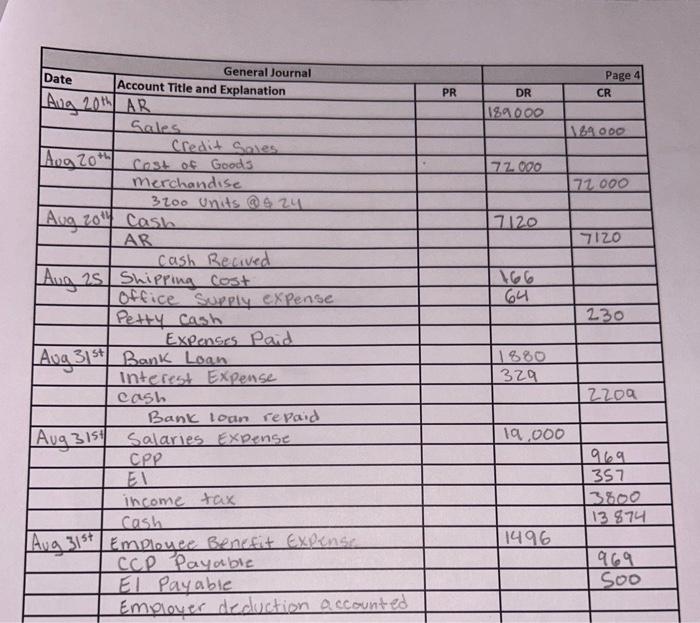 General Journal Page 4
Date Account Title and Explanation PR DR CR
Aug 20th AR 189000
Sales 189000
Credit Sales
Aug 20th Cost of Goods 72000
merchandise 72000
3200 units @ $ 24
Aug 20th Cash 7120
AR 7120
Cash Recived
Aug 25 Shipping Cost 166
Office Supply expense 64
Petty Cash 230
Expenses Paid
Aug 31st Bank Loan 1880
Interest Expense 329
cash 2209
Bank loan repaid
Aug 31st Salaries Expense 19,000
CPP 969
EI 357
income tax 3800
Cash 13874
Aug 31st Employee Benefit Expense 1496
CCP Payable 969
EI Payable 500
Employer deduction accounted